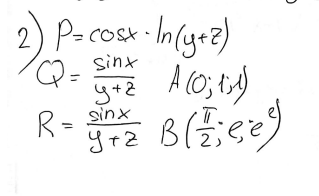 2) P = cosx · ln(y+z)
Q = sinx/(y+z) A(0; 1; 1)
R = sinx/(y+z) B(π/2; e; e^e)